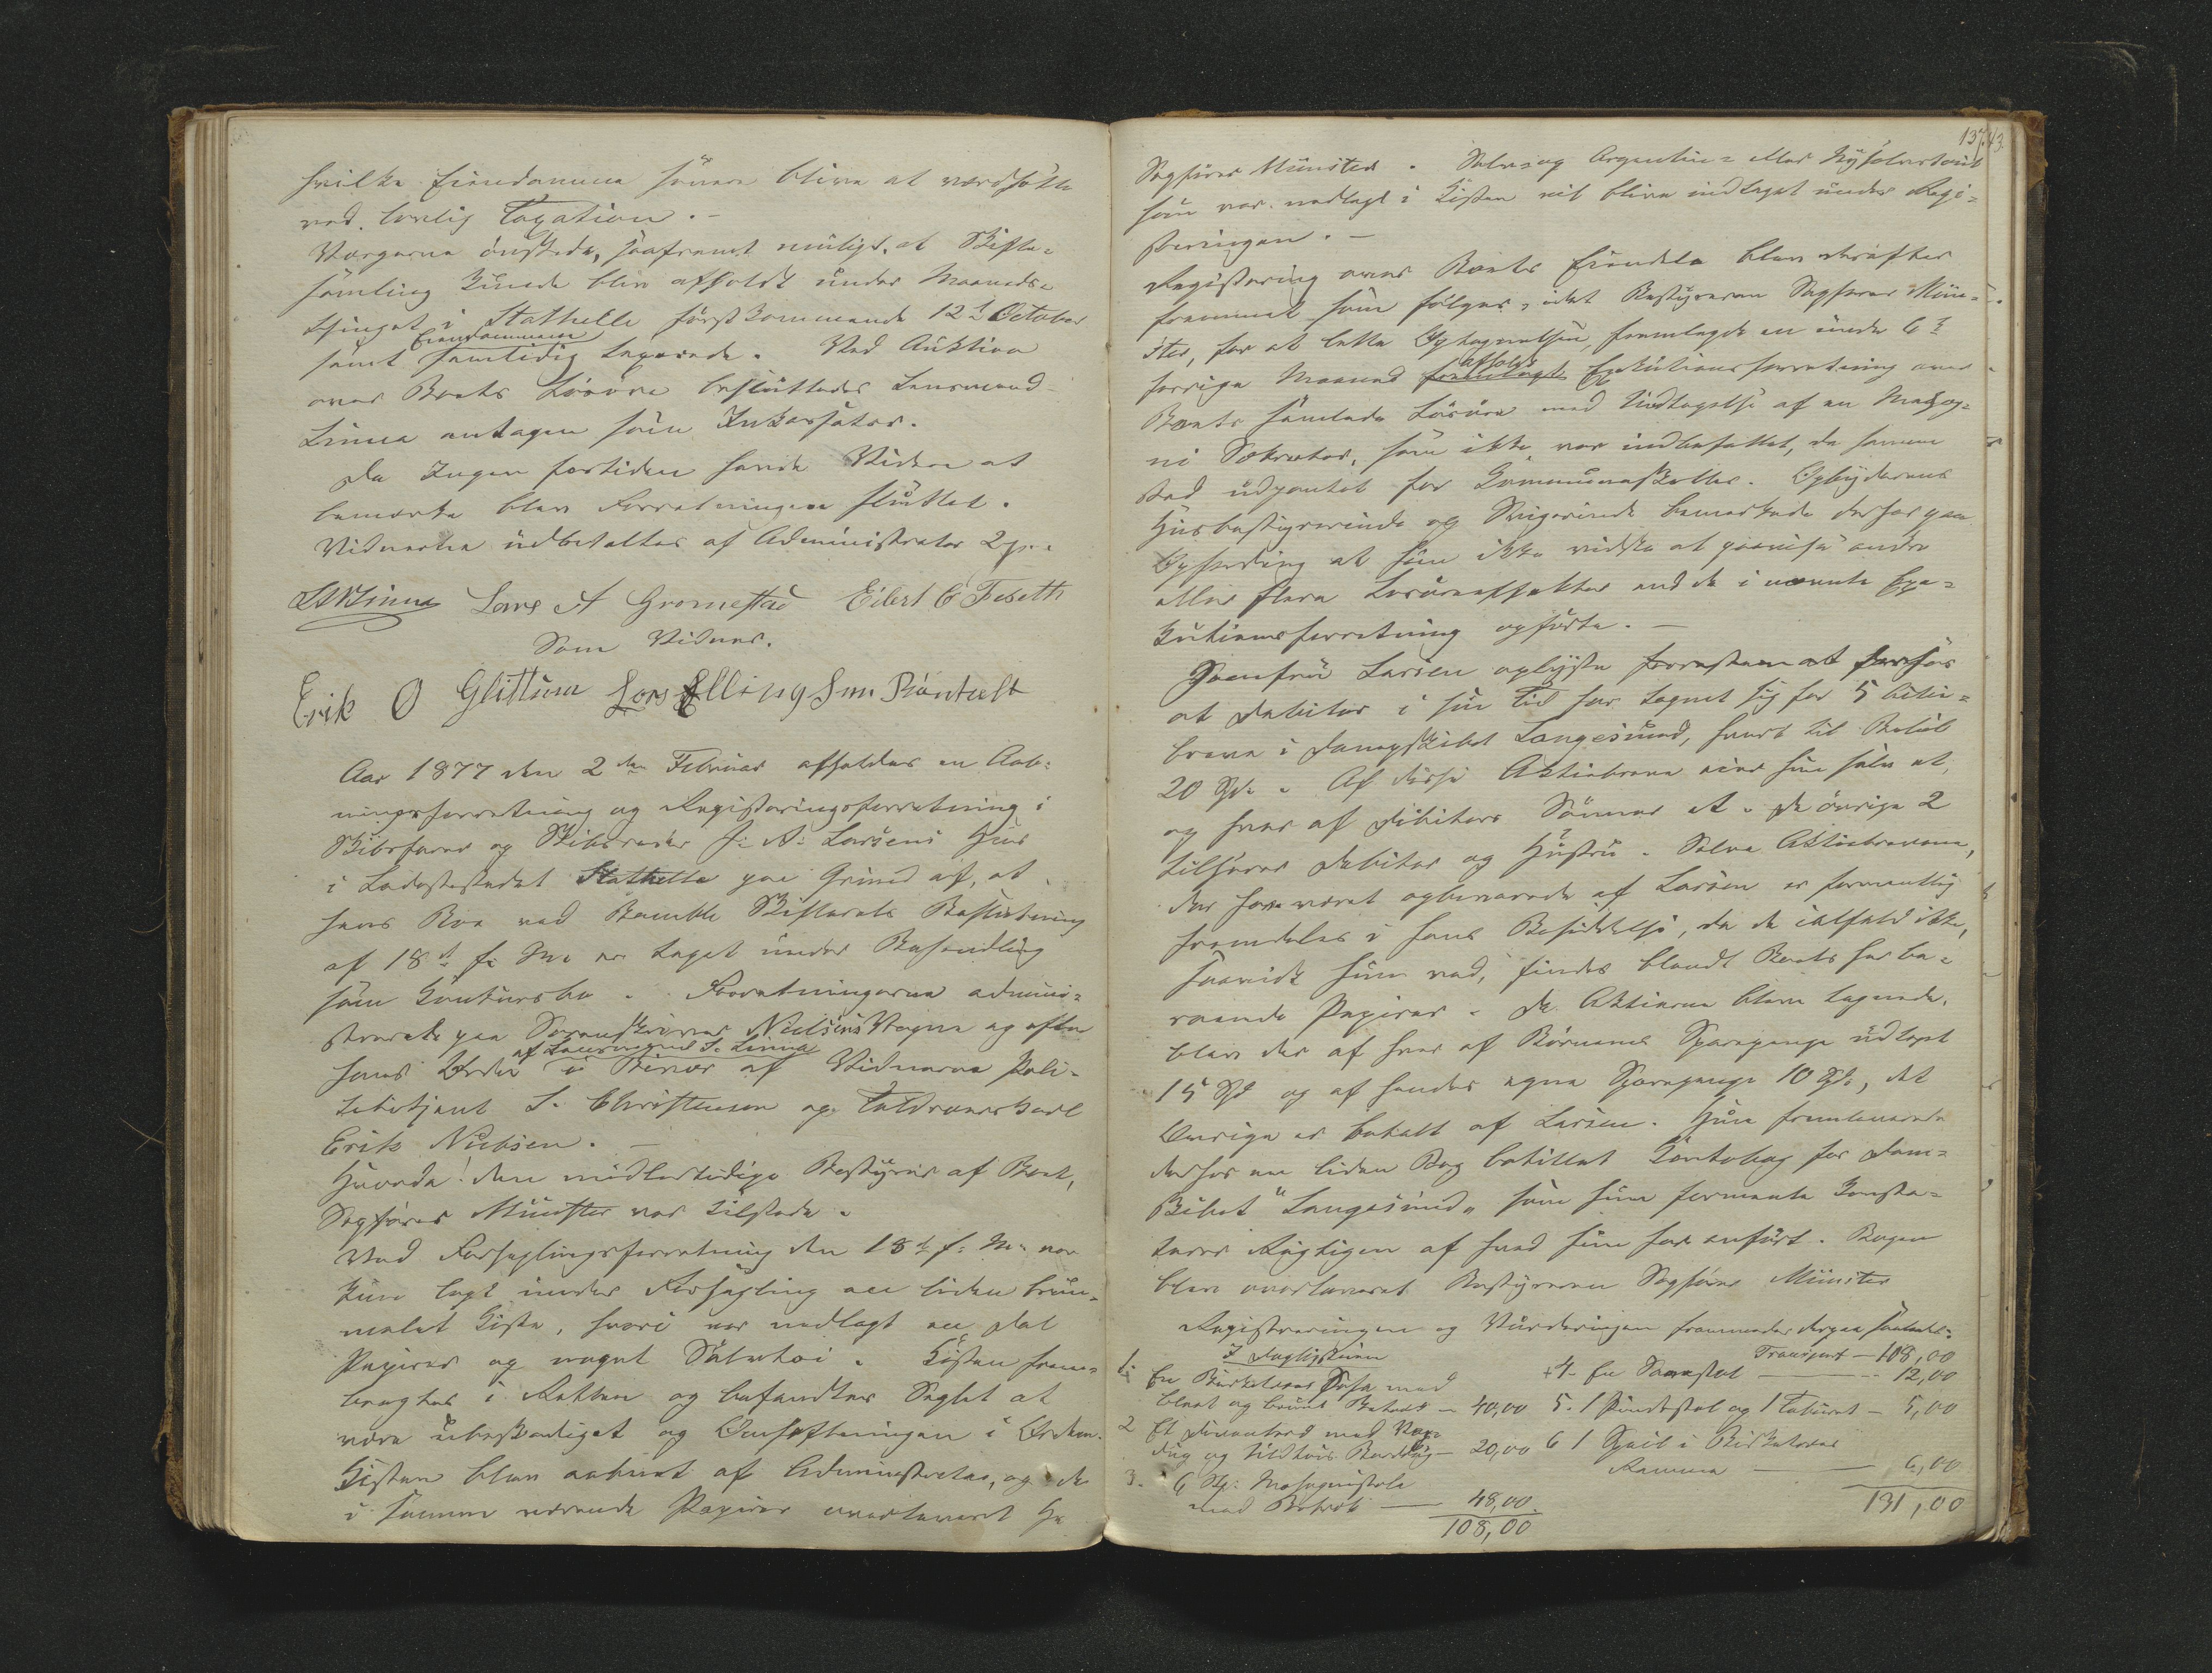 hvilke Eiendomme senere bliver at værdsætte
ved lovlig Taxation. –
Værgerne ønskede, saafremt muligt, at Skifte-
samling kunde blive afholdt under Maaneds-
thinget i Stathelle førstkommende 12te October
samt Eiendommene samtidig taxerede. Ved Auktion
over Boets Løsøre besluttedes Lensmand
Linna antagen som Inkassator.
Da Ingen fortiden havde Videre at
bemærke blev Forretningen sluttet.
Vidnerne udbetaltes af Administrator
Linna Lars A Gromestad Eilert C Feseth
Som Vidner.
Erik O Glittum Lars Ellingsen Røntvelt
Aar 1877 den 2den Februar afholdes en Aab-
ningsforretning og Registeringsforretning i
Skibsfører og Skibsreder J. A. Larsens Hus
i Ladestedet Stathelle paa Grund af, at
hans Bo ved Bamble Skifterets Beslutning
af 18de f. M. er taget under Behandling
som Konkursbo. Forretningerne admini-
streredes paa Sorenskriver Nielsens Vegne og efter
hans Ordre af Lensmand S. Linna af Vidnerne Poli-
tibetjent S. Christensen og Toldroerskarl
Erik Nielsen. –
Hvorda! den midlertidige Bestyrer af Boet,
Sagfører Münster var tilstede.
Ved Forseglingsforretning den 18de f. M. var
kun lagt under Forsegling en liden brun-
malet Kiste, hvori var nedlagt en Del
Papirer og noget Sølvtøi. Kisten frem-
bragtes i Retten og befandtes Seglet at
være ubeskadiget og Omhæftningen i Orden.
Kisten blev aabnet af Administrator, og de
i samme værende Papirer overleveret Hr
137. 43.
Sagfører Münster. Sølv- og Argentin- eller Nysølvstøiet
som var nedlagt i Kisten vil blive indtaget under Regi-
streringen. –
Registering over Boets Eiendele blev derefter
fremmet som følger, idet Bestyreren Sagfører Mün-
ster, for at lette Optagnelsen, fremlagde en under 6te
forrige Maaned afholdt Exekutionsforretning over
Boets samlede Løsøre med Undtagelse af en Mahog-
ni Sekretær, som ikke var indbefattet, da samme
stod udpantet for Kommuneskatter. Opbyderens
Husbestyrerinde og Svigerinde bemærkede derfor paa
Opfordring at hun ikke vidste at paavise andre
eller flere Løsøreeffekter end de i nævnte Exe-
kutionsforretning opførte. –
Jomfru Larsen oplyste
at Debitor i sin Tid har tegnet sig for 5 Aktie-
breve i Dampskibet Langesund, hvert til Beløb
20 Spd. Af disse Aktiebreve eier hun selv et,
og hver af Debitors Sønner et. De øvrige 2
tilhører Debitor og Hustru. Selve Aktiebrevene,
der have været opbevarede af Larsen er formentlig
fremdeles i hans Besiddelse, da de ialfald ikke,
saavidt hun ved, findes blandt Boets herbe-
roende Papirer. Da Aktierne bleve tegnede,
blev der af hver af Børnenes Sparepenge udtaget
15 Spd og af hendes egne Sparepenge 10 Spd, det
Øvrige er betalt af Larsen. Hun fremleverede
derhos en liden Bog betitlet Kontobog for Dam-
skibet "Langesund" som hun formente konsta-
terer Rigtigen af hvad hun har anført. Bogen
blev overleveret Bestyreren Sagfører Münster
Registreringen og Vurderingen fremmedes derpaa saaledes:
I Dagligstuen
1. En Birketræes Sofa med
blaat og brunt Betræk – 40,00
2 Et Divanbord med Vox-
dug og tilhørende Bordtæppe – 20,00
3. 6 Stk. Mahognistole
med Betræk – 48,00
108,00
Transport – 108,00
4. En Lænestol – 12,00
5. 1 Pindestol og 1 Taburet – 5,00
6 1 Speil i Birketræes
Ramme – 6,00
131,00